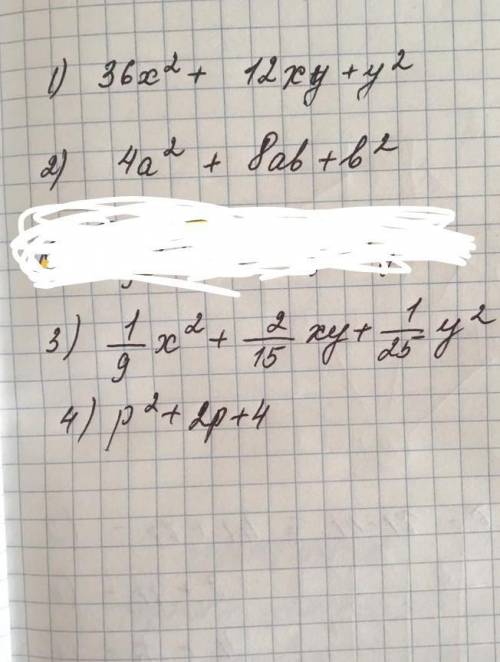 1) 36x² + 12xy + y²
2) 4a² + 8ab + b²
3) 1/9 x² + 2/15 xy + 1/25 y²
4) p² + 2p + 4